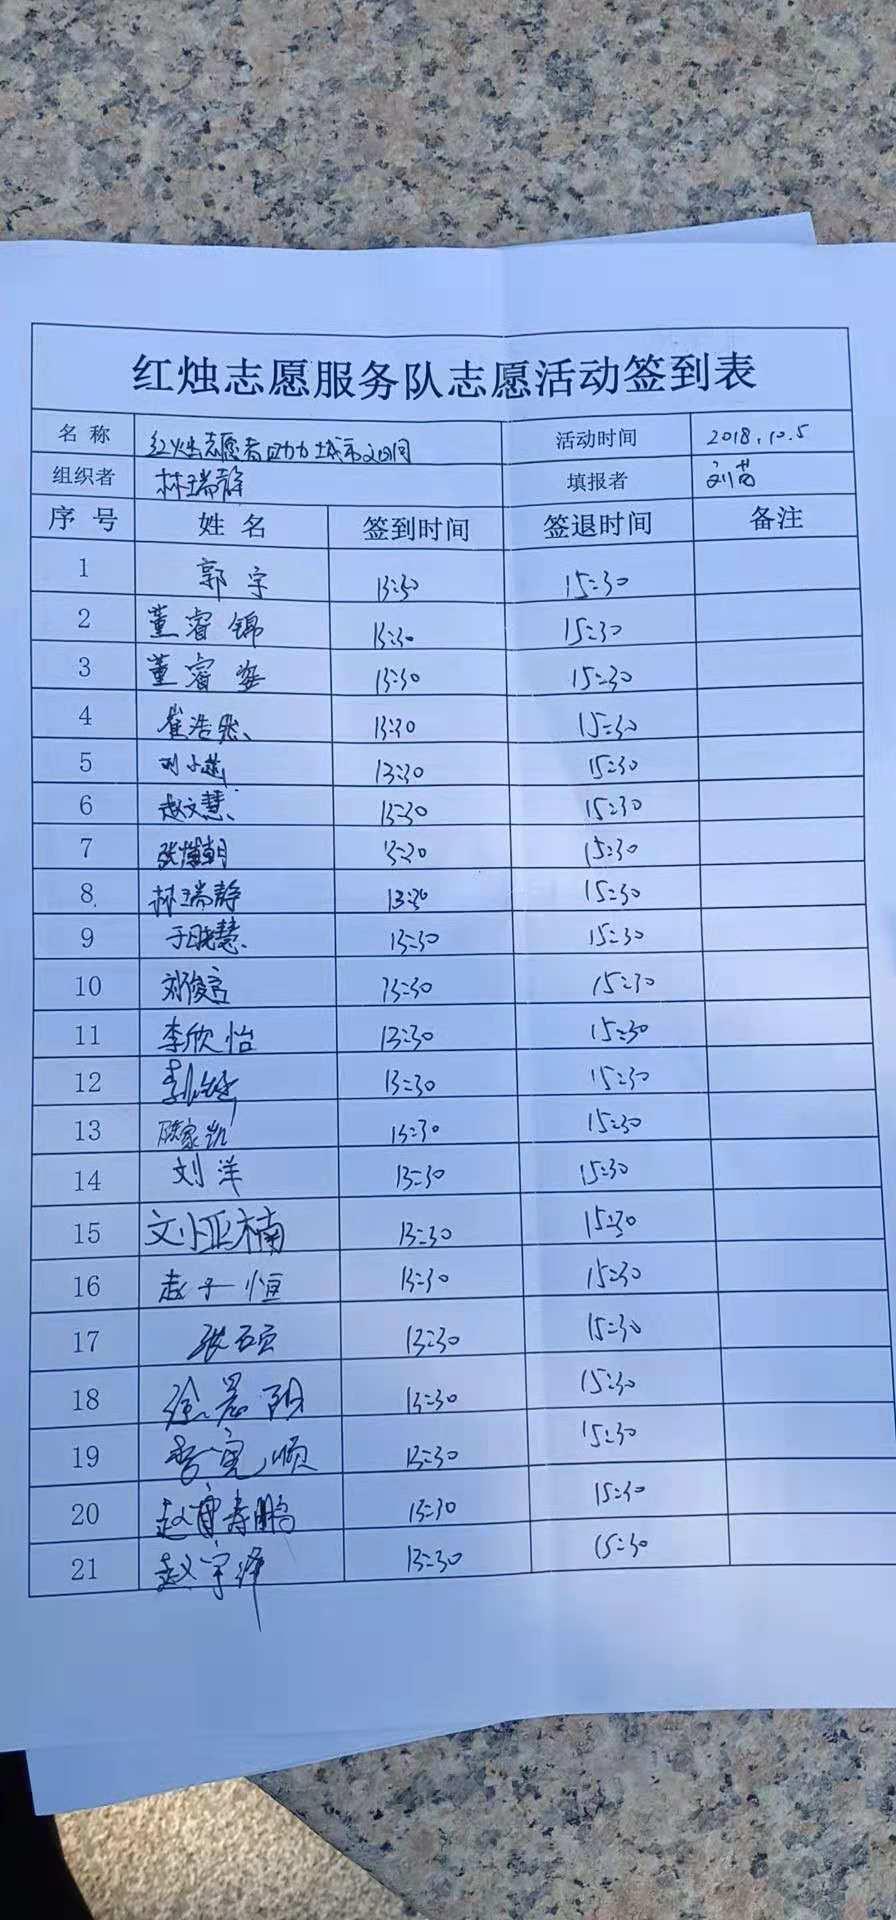 红烛志愿服务队志愿活动签到表
名 称 红烛志愿者助力城市 活动时间 2018.10.5
组织者 林瑞静 填报者 刘茜
序 号 姓 名 签到时间 签退时间 备注
1 郭宇 13:30 15:30
2 董睿锦 13:30 15:30
3 董睿姿 13:30 15:30
4 崔浩然 13:30 15:30
5 刘小燕 13:30 15:30
6 赵文慧 13:30 15:30
7 13:30 15:30
8 林瑞静 13:30 15:30
9 于晓慧 13:30 15:30
10 刘俊言 13:30 15:30
11 李欣怡 13:30 15:30
12 13:30 15:30
13 13:30 15:30
14 刘洋 13:30 15:30
15 文小亚楠 13:30 15:30
16 赵子恒 13:30 15:30
17 张硕 13:30 15:30
18 徐晨阳 13:30 15:30
19 李宪顺 13:30 15:30
20 13:30 15:30
21 赵宇泽 13:30 15:30